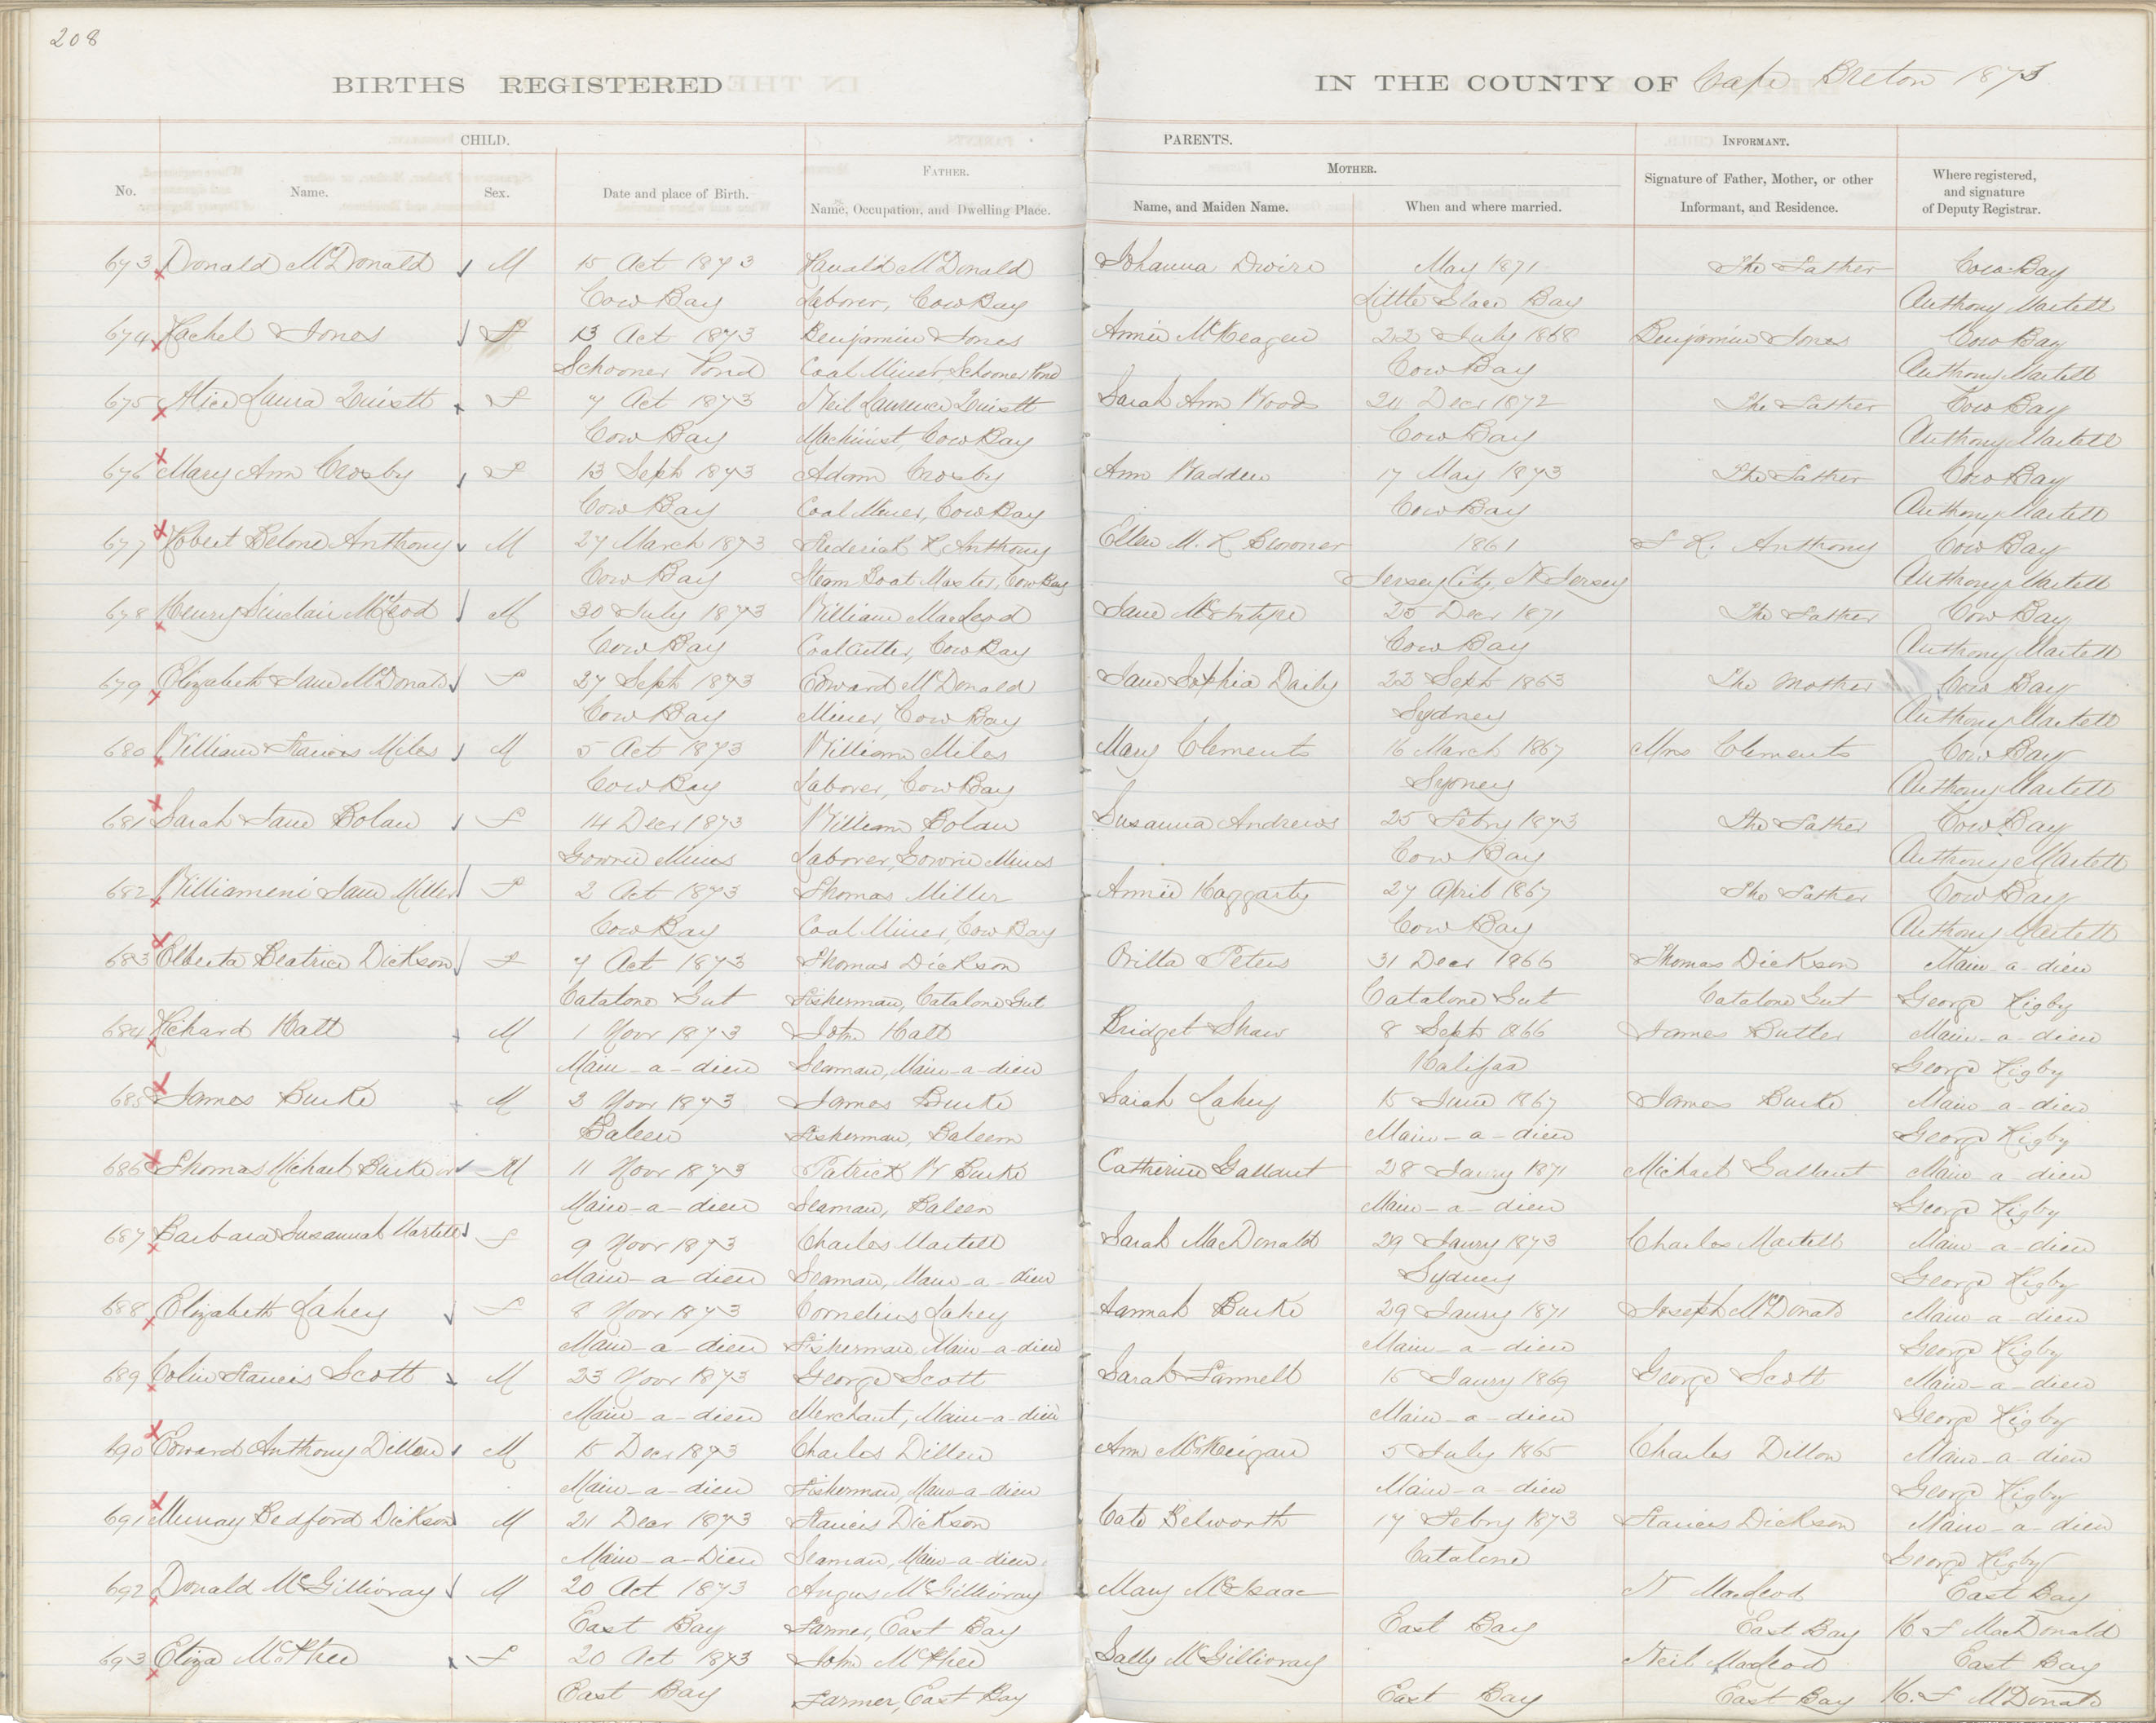 208
BIRTHS REGISTERED
IN THE COUNTY OF Cape Breton 1873
CHILD. PARENTS. INFORMANT.
FATHER. MOTHER.
No. Name. Sex. Date and place of Birth. Name, Occupation, and Dwelling Place. Name, and Maiden Name. When and where married. Signature of Father, Mother, or other Informant, and Residence. Where registered, and signature of Deputy Registrar.
673 Donald McDonald M 15 Oct 1873 Ranald McDonald Johanna Dwire May 1871 The Father Cow Bay
Cow Bay Laborer, Cow Bay Little Glace Bay Anthony Martell
674 Rachel Jones F 13 Oct 1873 Benjamin Jones Annie McKeagen 22 July 1868 Benjamin Jones Cow Bay
Schooner Pond Coal Miner, Schooner Pond Cow Bay Anthony Martell
675 Alice Laura F 7 Oct 1873 Neil Laurence Sarah Ann Woods 24 Decr 1872 The Father Cow Bay
Cow Bay Machinist, Cow Bay Cow Bay Anthony Martell
676 Mary Ann Crosby F 13 Sept 1873 Adam Crosby Ann Wadden 17 May 1873 The Father Cow Bay
Cow Bay Coal Miner, Cow Bay Cow Bay Anthony Martell
677 Robert Belone Anthony M 27 March 1873 Frederick R Anthony Ellen M. R. 1861 F R. Anthony Cow Bay
Cow Bay Steam Boat Master, Cow Bay Jersey City, N Jersey Anthony Martell
678 Henry Sinclair McLeod M 30 July 1873 William MacLeod Jane McIntyre 25 Decr 1871 The Father Cow Bay
Cow Bay Coal Cutter, Cow Bay Cow Bay Anthony Martell
679 Elizabeth Jane McDonald F 27 Sept 1873 Edward McDonald Jane Sophia Daily 22 Sept 1863 The Mother Cow Bay
Cow Bay Miner, Cow Bay Sydney Anthony Martell
680 William Francis Miles M 5 Oct 1873 William Miles Mary Clements 16 March 1867 Mrs Clements Cow Bay
Cow Bay Laborer, Cow Bay Sydney Anthony Martell
681 Sarah Jane Bolan F 14 Decr 1873 William Bolan Susanna Andrews 25 Febry 1873 The Father Cow Bay
Gowrie Mines Laborer, Gowrie Mines Cow Bay Anthony Martell
682 Williameni Jane Miller F 2 Oct 1873 Thomas Miller Annie Haggarty 27 April 1867 The Father Cow Bay
Cow Bay Coal Miner, Cow Bay Cow Bay Anthony Martell
683 Elberta Beatrice Dickson F 7 Oct 1873 Thomas Dickson Orilla Peters 31 Decr 1866 Thomas Dickson Main-a-dieu
Catalone Gut Fisherman, Catalone Gut Catalone Gut Catalone Gut George Rigby
684 Richard Hall M 1 Novr 1873 John Hall Bridget Shaw 8 Sept 1866 James Butler Main-a-dieu
Main-a-dieu Seaman, Main-a-dieu Halifax George Rigby
685 James Burke M 3 Novr 1873 James Burke Sarah Lahey 15 June 1867 James Burke Main-a-dieu
Baleen Fisherman, Baleen Main-a-dieu George Rigby
686 Thomas Michael Burke M 11 Novr 1873 Patrick W Burke Catherine Gallant 28 Janry 1871 Michael Gallant Main-a-dieu
Main-a-dieu Seaman, Baleen Main-a-dieu George Rigby
687 Barbara Susannah Martell F 9 Novr 1873 Charles Martell Sarah MacDonald 29 Janry 1873 Charles Martell Main-a-dieu
Main-a-dieu Seaman, Main-a-dieu Sydney George Rigby
688 Elizabeth Lahey F 8 Novr 1873 Cornelius Lahey Hannah Burke 29 Janry 1871 Joseph McDonald Main-a-dieu
Main-a-dieu Fisherman, Main-a-dieu Main-a-dieu George Rigby
689 Colin Francis Scott M 23 Novr 1873 George Scott Sarah Fannell 15 Janry 1869 George Scott Main-a-dieu
Main-a-dieu Merchant, Main-a-dieu Main-a-dieu George Rigby
690 Edward Anthony Dillon M 15 Decr 1873 Charles Dillon Ann McKeigan 5 July 1865 Charles Dillon Main-a-dieu
Main-a-dieu Fisherman, Main-a-dieu Main-a-dieu George Rigby
691 Murray Bedford Dickson M 21 Decr 1873 Francis Dickson Cate Belworth 17 Febry 1873 Francis Dickson Main-a-dieu
Main-a-Dieu Seaman, Main-a-dieu. Catalone George Rigby
692 Donald McGillivray M 20 Oct 1873 Angus McGillivray Mary McIsaac N MacLeod East Bay
East Bay Farmer, East Bay East Bay East Bay K F MacDonald
693 Eliza McPhee F 20 Oct 1873 John McPhee Sally McGillivray Neil MacLeod East Bay
East Bay Farmer, East Bay East Bay East Bay K. F McDonald